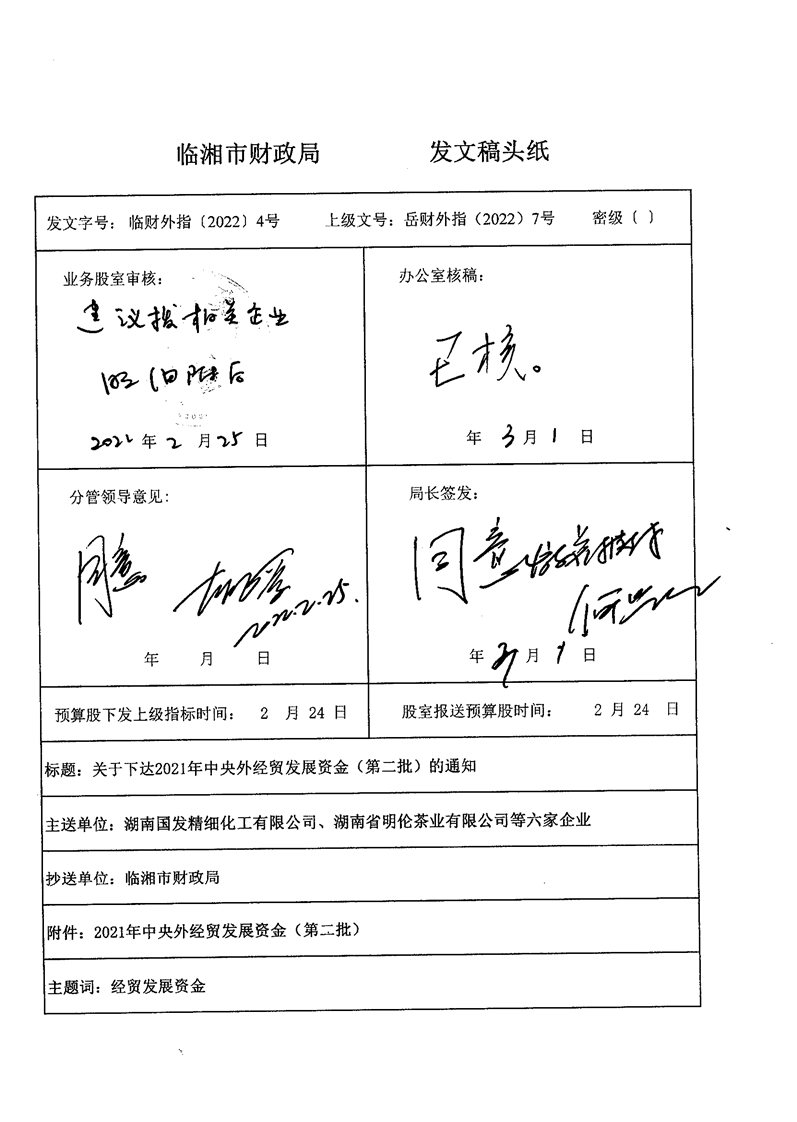 临湘市财政局 发文稿头纸
发文字号：临财外指〔2022〕4号 上级文号：岳财外指（2022）7号 密级（ ）
业务股室审核：
建议拨相关企业
明细附后
2022年2月25日
办公室核稿：
已核。
年3月1日
分管领导意见：
同意
2022.2.25.
年 月 日
局长签发：
同意
年3月1日
预算股下发上级指标时间： 2 月 24 日
股室报送预算股时间： 2 月 24 日
标题：关于下达2021年中央外经贸发展资金（第二批）的通知
主送单位：湖南国发精细化工有限公司、湖南省明伦茶业有限公司等六家企业
抄送单位：临湘市财政局
附件：2021年中央外经贸发展资金（第二批）
主题词：经贸发展资金